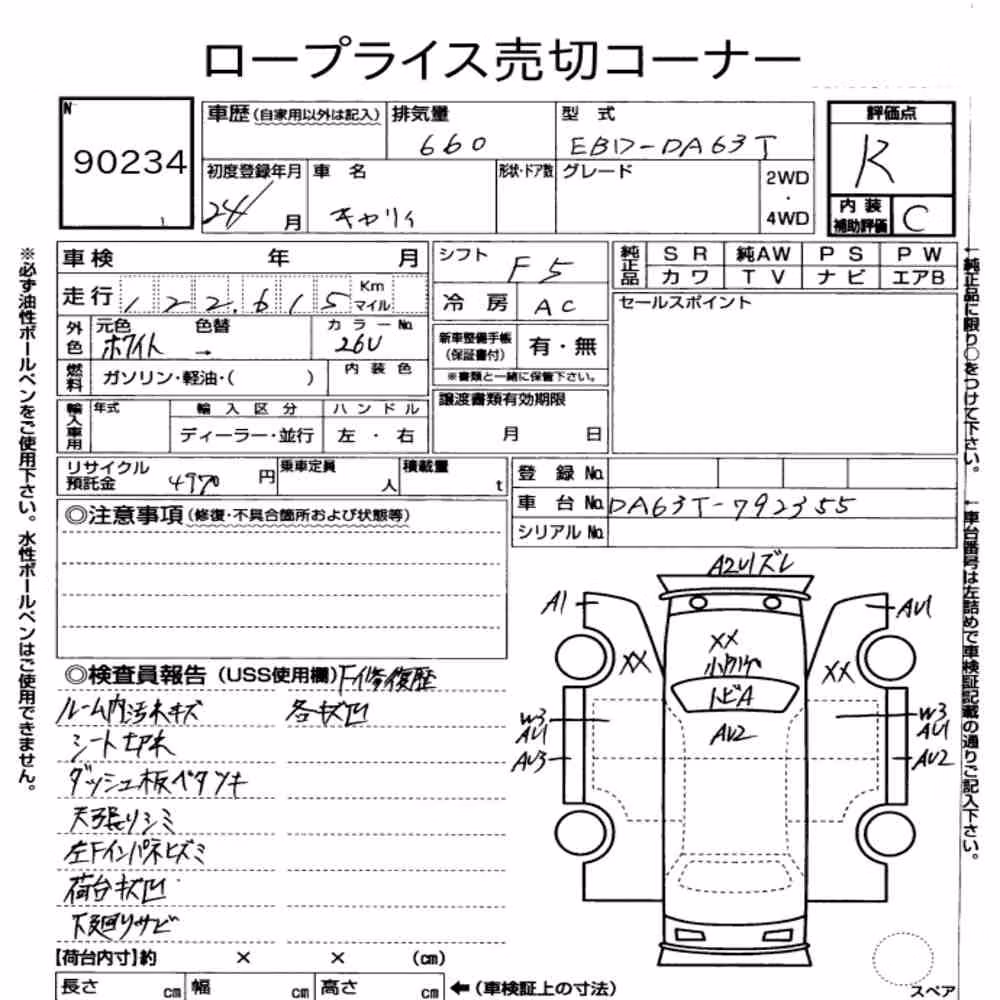 ロープライス売切コーナー
N 90234
車歴(自家用以外は記入) 排気量 660 型 式 EBD-DA63T
評価点 R
初度登録年月 24/ 月 車 名 キャリィ 形状・ドア数 グレード 2WD・4WD
内装補助評価 C
車検 年 月 シフト F5
純正品 SR 純AW PS PW
カワ TV ナビ エアB
走行 122,615 Km マイル 冷房 AC
セールスポイント
外色 元色 ホワイト 色替 → カラーNo. 26U
新車整備手帳(保証書付) 有・無
※書類と一緒に保管下さい。
燃料 ガソリン・軽油・( ) 内装色
輸入車用 年式 輸入区分 ハンドル
ディーラー・並行 左・右
譲渡書類有効期限 月 日
リサイクル預託金 4970 円 乗車定員 人 積載量 t
登録No.
車台No. DA63T-792355
シリアルNo.
◎注意事項(修復・不具合箇所および状態等)
◎検査員報告(USS使用欄) F修復歴
ルーム内汚れキズ 各キズ凹
シート切れ
ダッシュ板ベタツキ
天張りシミ
左Fインパネヒズミ
荷台キズ凹
下廻りサビ
【荷台内寸】約 × × (cm)
長さ cm 幅 cm 高さ cm ←(車検証上の寸法)
A2U1ズレ
A1
AU1
XX
XX
XX
トビA
AU2
W3
AU1
AU3
W3
AU1
AU2
スペア
※必ず油性ボールペンをご使用下さい。水性ボールペンはご使用できません。
←純正品に限り○をつけて下さい。
←車台番号は左詰めで車検証記載の通りご記入下さい。